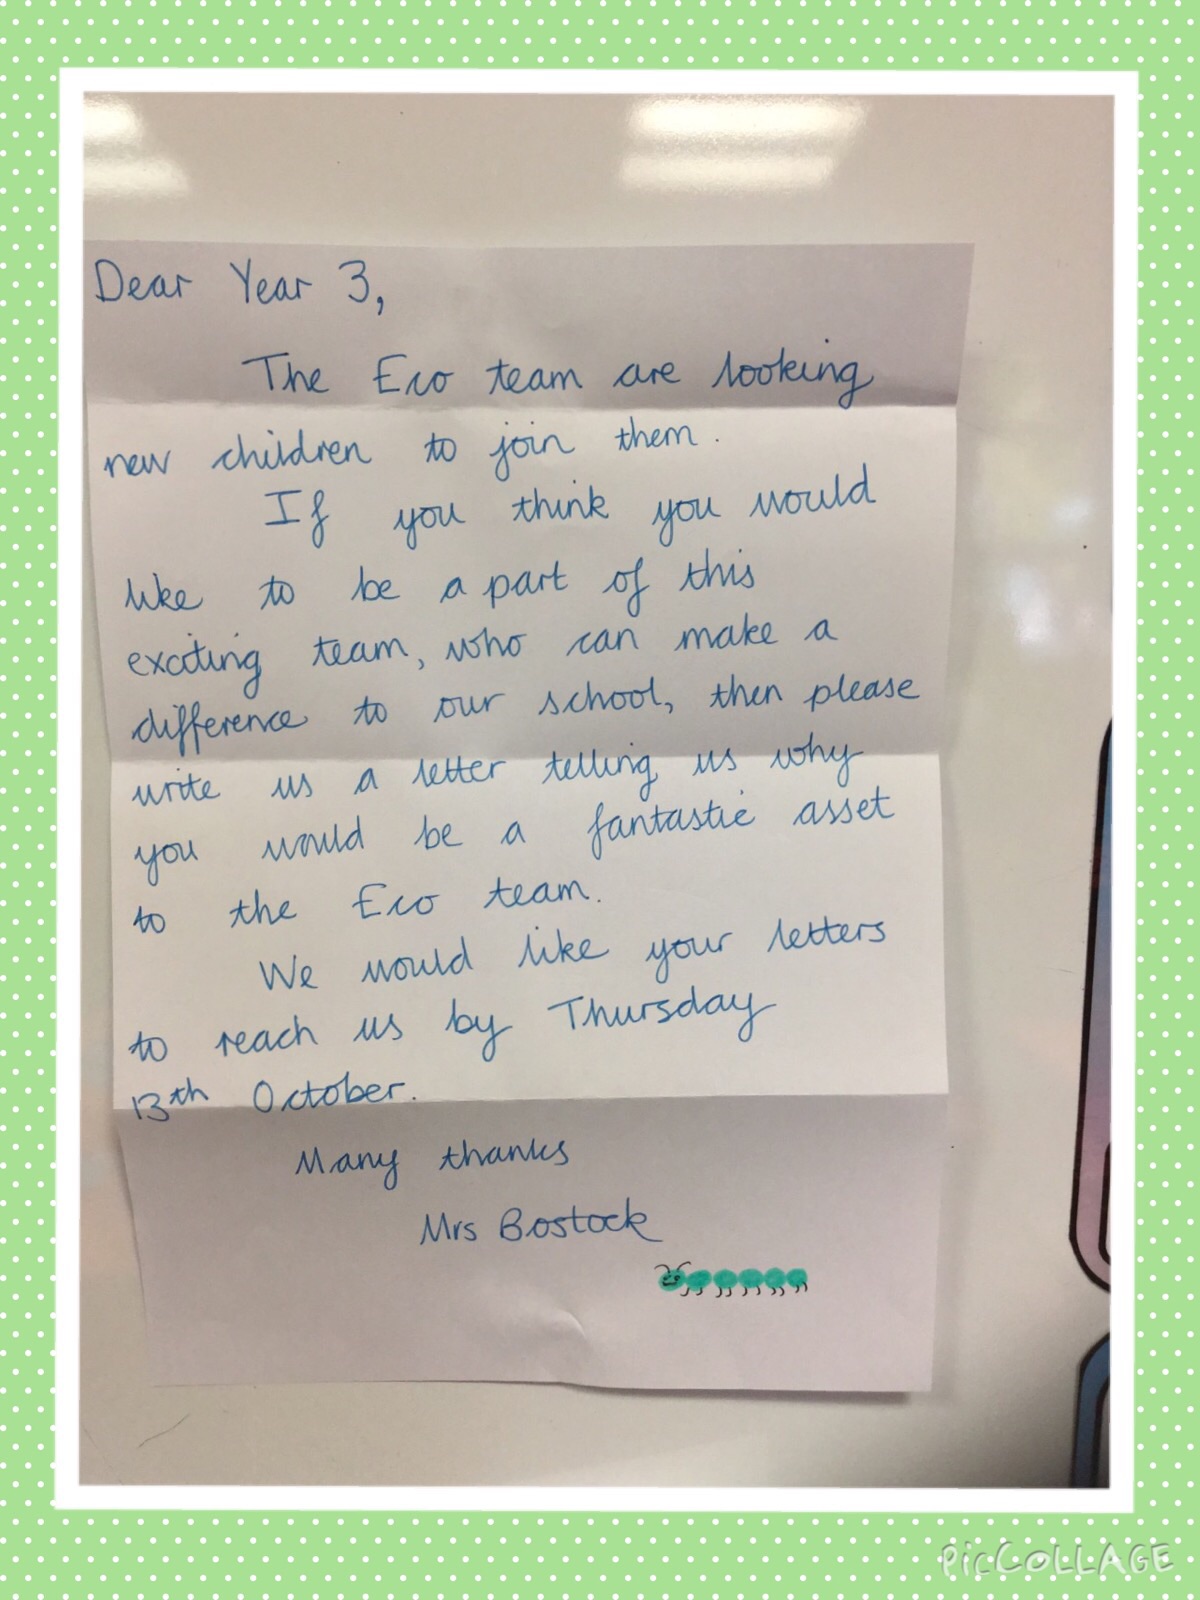 Dear Year 3,
The Eco team are looking
new children to join them.
If you think you would
like to be a part of this
exciting team, who can make a
difference to our school, then please
write us a letter telling us why
you would be a fantastic asset
to the Eco team.
We would like your letters
to reach us by Thursday
13th October.
Many thanks
Mrs Bostock
PICCOLLAGE